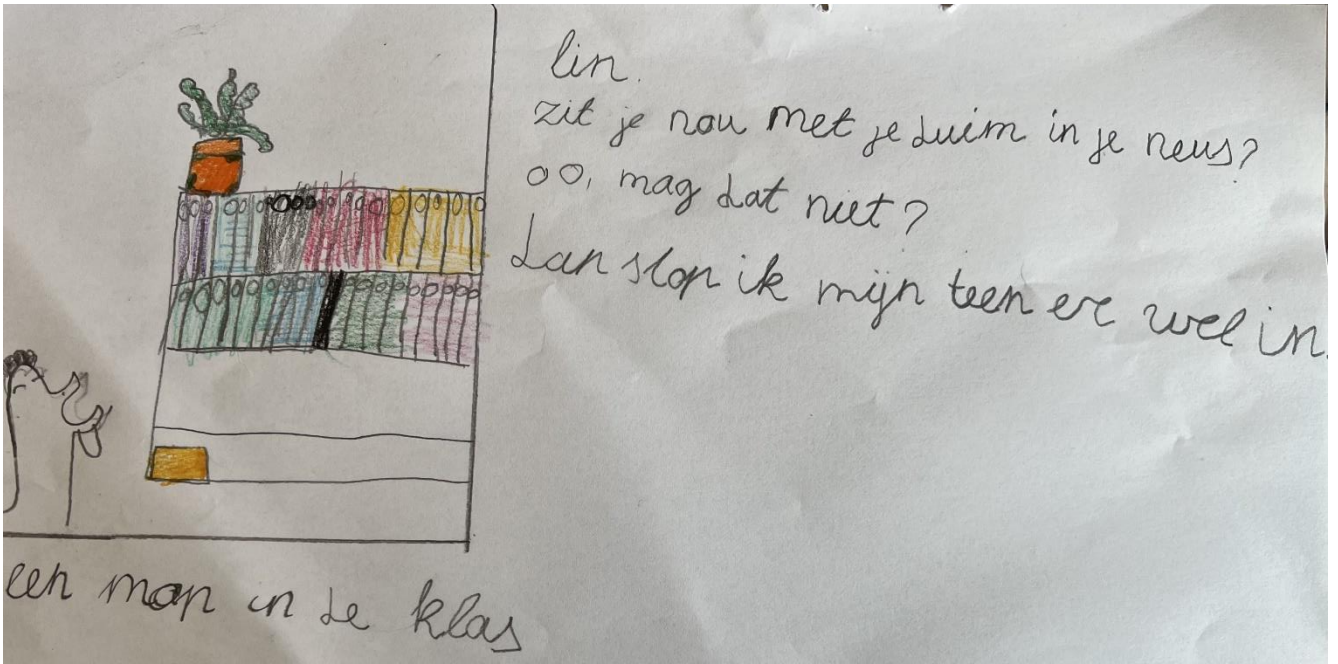 lin.
zit je nou met je duim in je neus?
oo, mag dat niet?
dan stop ik mijn teen er wel in.
een mop in de klas